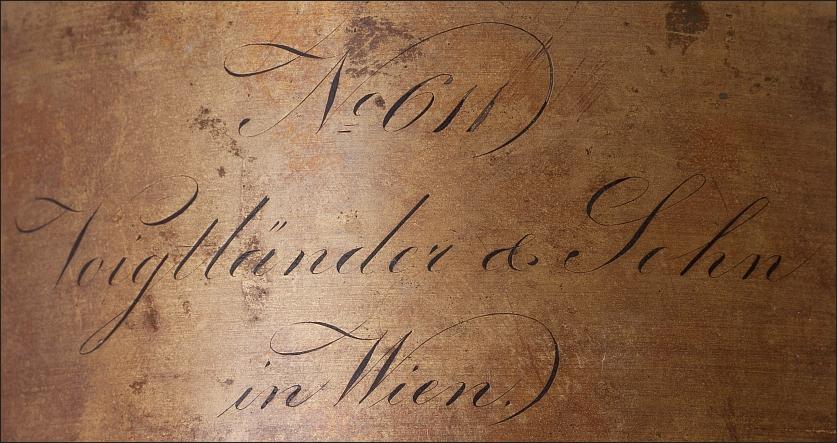 No 611
Voigtländer & Sohn
in Wien.